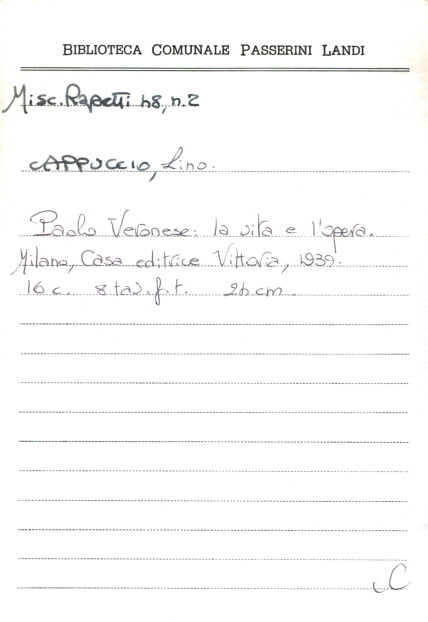 BIBLIOTECA COMUNALE PASSERINI LANDI
Misc. Rapetti 48, n.2
CAPPUCCIO, Lino.
Paolo Veronese: la vita e l'opera.
Milano, Casa editrice Vittoria, 1939.
16 c. 8 tav. f. t. 24 cm.
C